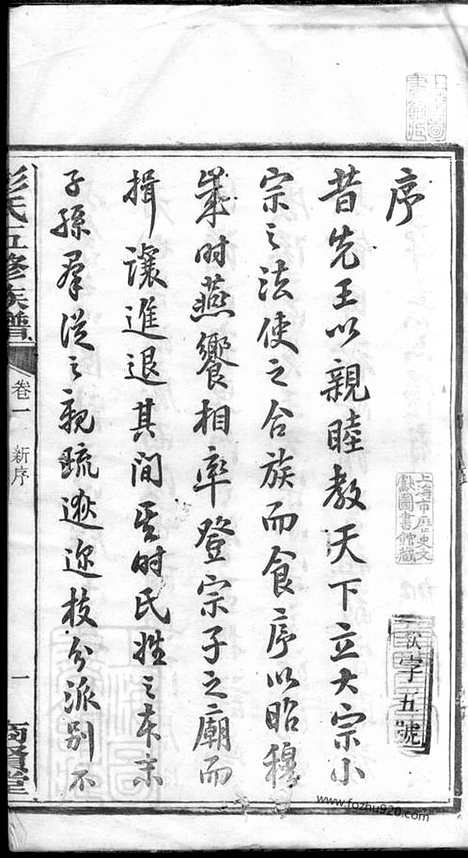 序
昔先王以親睦教天下立大宗小
宗之法使之合族而食序以昭穆
歲時燕饗相率登宗子之廟而
揖讓進退其間吾时氏姓之本末
子孫羣從之親疏遠迩枝分派别不
彭氏五修族譜
卷一
新序
一
商賢堂
上海市历史文
献圖書館藏
字五號
www.fozhu920.com